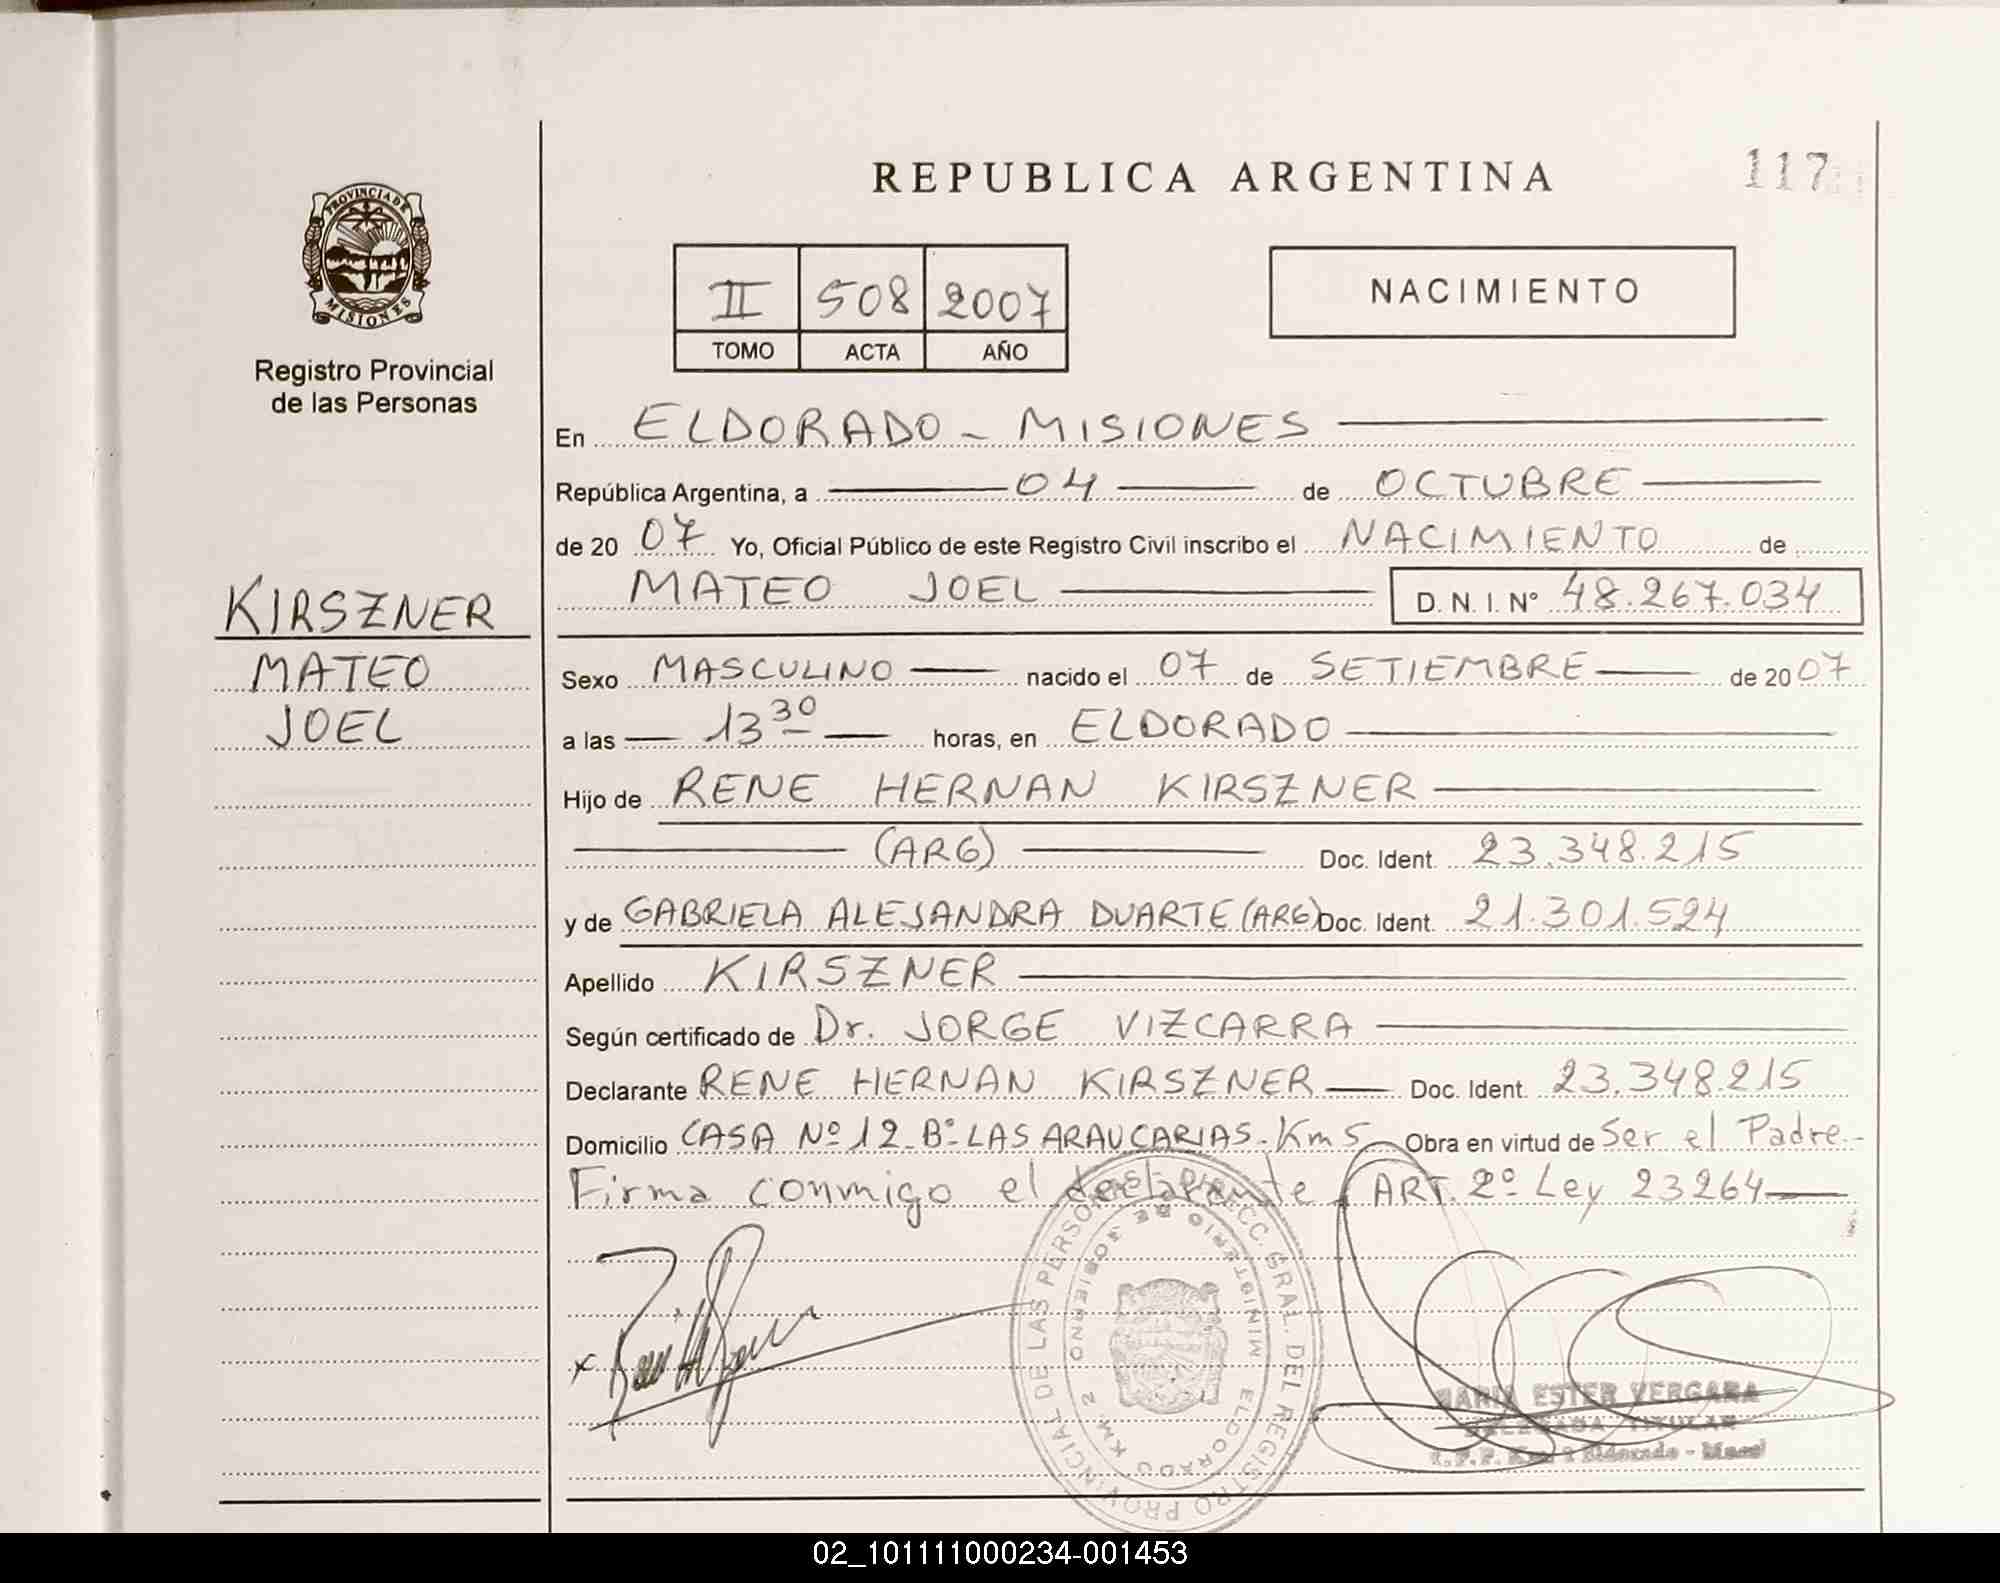 REPUBLICA ARGENTINA
117
PROVINCIA DE
MISIONES
Registro Provincial
de las Personas
II 508 2007
TOMO ACTA AÑO
NACIMIENTO
En ELDORADO - MISIONES
República Argentina, a 04 de OCTUBRE
de 20 07 Yo, Oficial Público de este Registro Civil inscribo el NACIMIENTO de
MATEO JOEL D. N. I. Nº 48.267.034
KIRSZNER
MATEO
JOEL
Sexo MASCULINO nacido el 07 de SETIEMBRE de 20 07
a las 13 30 horas, en ELDORADO
Hijo de RENE HERNAN KIRSZNER
(ARG) Doc. Ident. 23.348.215
y de GABRIELA ALEJANDRA DUARTE (ARG) Doc. Ident. 21.301.524
Apellido KIRSZNER
Según certificado de Dr. JORGE VIZCARRA
Declarante RENE HERNAN KIRSZNER Doc. Ident. 23.348.215
Domicilio CASA Nº 12 - Bº LAS ARAUCARIAS - Km 5 Obra en virtud de Ser el Padre.-
Firma conmigo el declarante ART. 2º Ley 23264
DIRECC. GRAL. DEL REGISTRO PROVINCIAL DE LAS PERSONAS
MINISTERIO DE GOBIERNO
ELDORADO KM. 2
MARIA ESTER VERGARA
DELEGADA TITULAR
Eldorado -
02_101111000234-001453